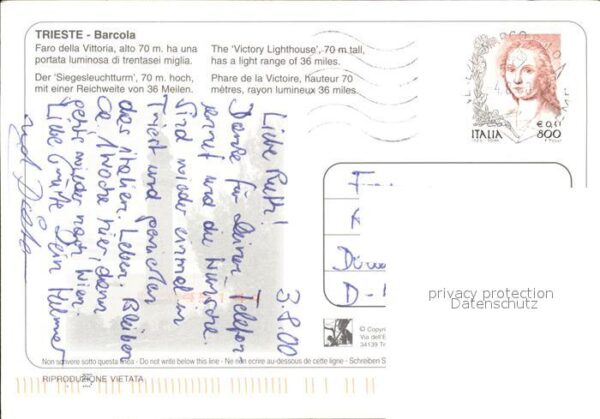 TRIESTE - Barcola
Faro della Vittoria, alto 70 m. ha una
portata luminosa di trentasei miglia.
Der 'Siegesleuchtturm', 70 m. hoch,
mit einer Reichweite von 36 Meilen.
The 'Victory Lighthouse', 70 m. tall,
has a light range of 36 miles.
Phare de la Victoire, hauteur 70
mètres, rayon lumineux 36 miles.
3.8.00
Liebe Ruth!
Danke für Deinen Telefon-
anruf und die Wünsche.
Sind wieder einmal in
Triest und genießen
das italien. Leben. Bleiben
ca. 1 Woche hier, dann
geht's wieder nach Wien.
Liebe Grüße Dein Helmut
und
€ 0,41
ITALIA 800
Dü
D-
privacy protection
Datenschutz
© Copyri
Via dell'E
34139 Tri
Non scrivere sotto questa linea - Do not write below this line - Ne rien écrire au-dessous de cette ligne - Schreiben S
RIPRODUZIONE VIETATA